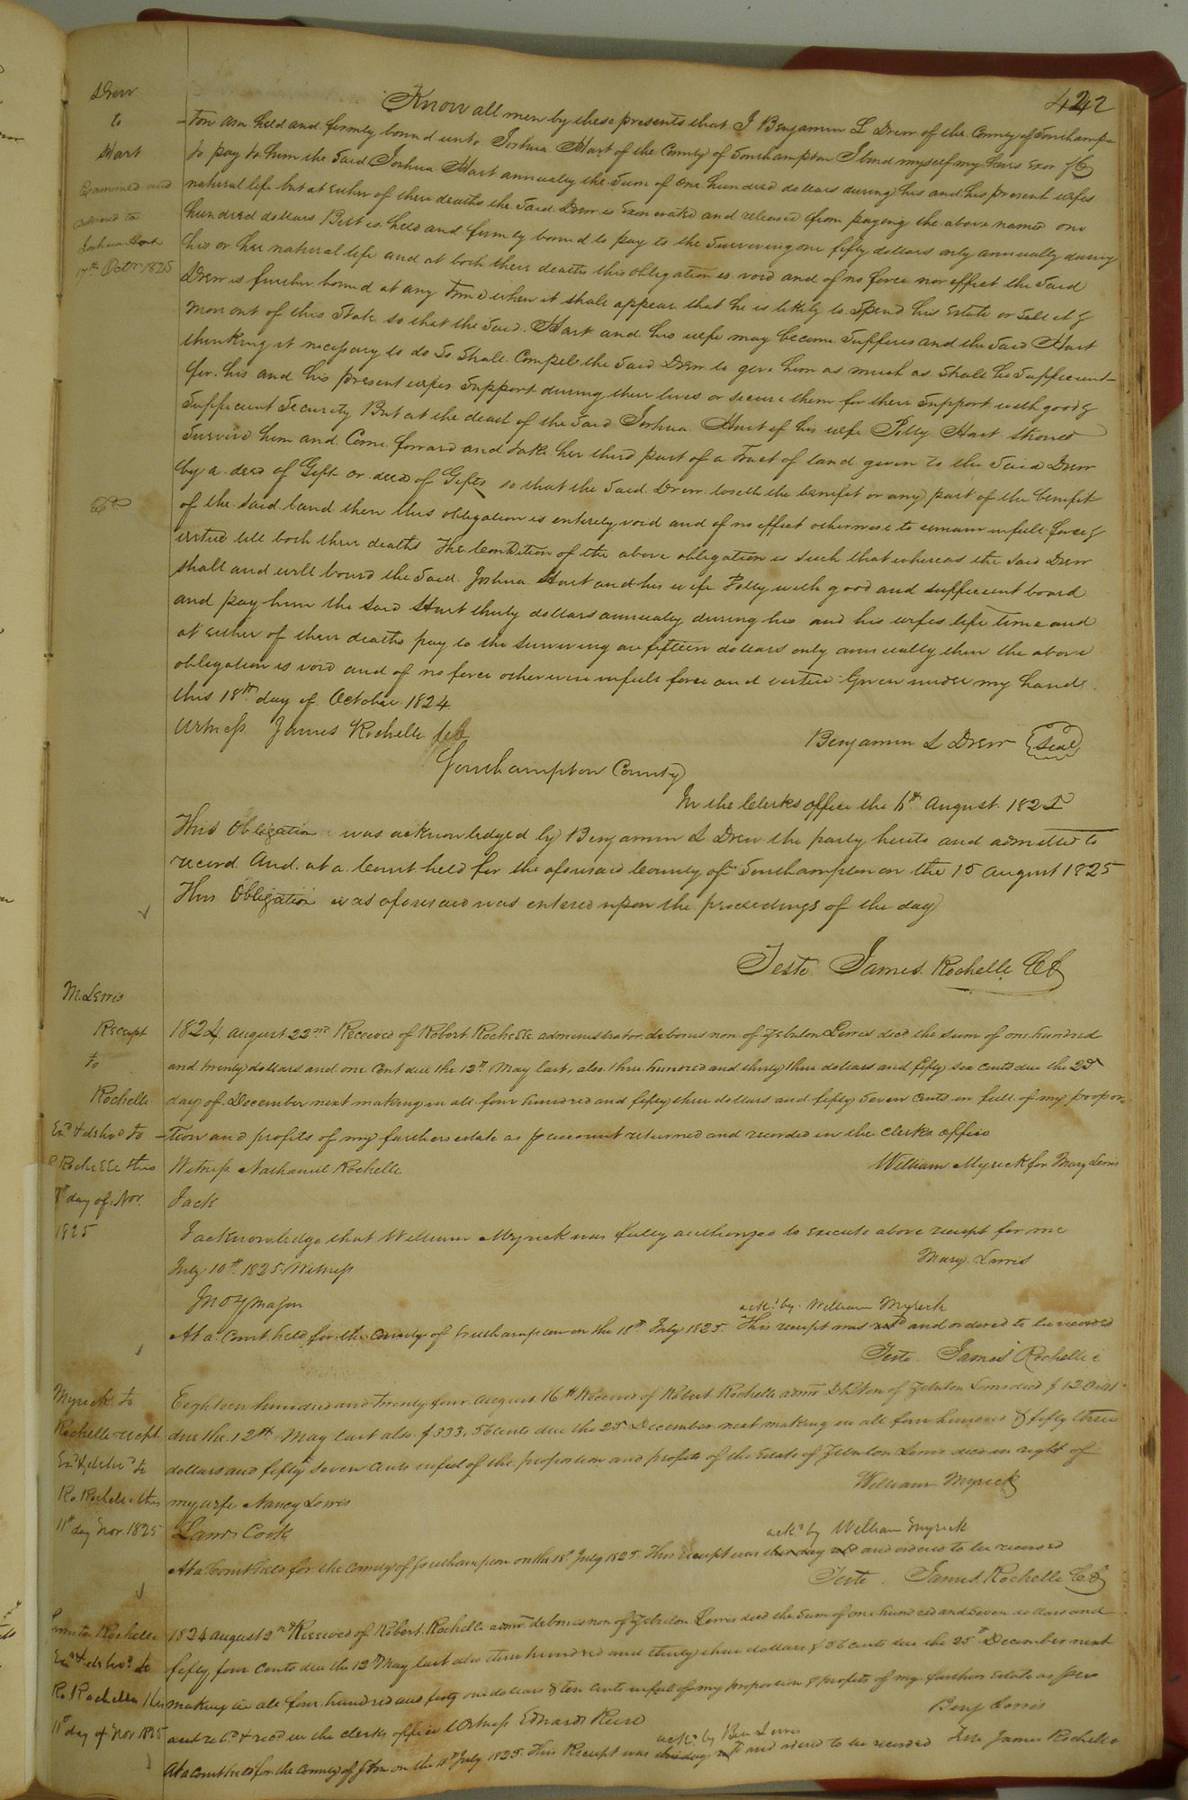 422
Drew
to
Hart
Examined and
delivered to
Joshua Hart
17th Octr 1825
Know all men by these presents that I Benjamin L Drew of the County of Southamp-
-ton am held and firmly bound unto Joshua Hart of the County of Southampton I bind myself my heirs Exor &c
to pay to him the Said Joshua Hart annually the Sum of One hundred dollars during his and his present wifes
natural life but at Either of there deaths the Said Drew is Exonerated and released from paying the above named one
hundred dollars But is held and firmly bound to pay to the Surviving one fifty dollars only annually during
his or her natural life and at both there deaths this obligation is void and of no force nor effect the Said
Drew is further bound at any time when it shall appear that he is likely to Spend his Estate or Sell it &
move out of this State so that the Said Hart and his wife may become Sufferers and the Said Hart
thinking it necessary to do So Shall Compel the Said Drew to give him as much as Shall be Sufficient
for his and his present wifes Support during their lives or secure them for there Support with good &
Sufficient Security But at the dead of the Said Joshua Hart if his wife Polly Hart Should
Survive him and Come forward and take her third part of a Tract of land given to the Said Drew
by a deed of Gift or deed of Gifts so that the Said Drew loseth the benefit or any part of the benefit
of the said land then this obligation is entirely void and of no effect otherwise to remain in full force &
virtue till both their deaths The Condition of the above obligation is Such that whereas the Said Drew
shall and will board the Said Joshua Hart and his wife Polly with good and sufficient board
and pay him the said Hart thirty dollars annually during his and his wifes life time and
at Either of their deaths pay to the Surviving one fifteen dollars only annually then the above
obligation is void and of no force otherwise in full force and virtue Given under my hand
this 18th day of October 1824
Witness James Rochelle
Benjamin L Drew Seal
Southampton County
In the Clerks office the 6th August 1825
This Obligation was acknowledged by Benjamin L Drew the party hereto and admitted to
record And at a Court held for the aforesaid County of Southampton on the 15 August 1825
This Obligation was aforesaid was entered upon the proceedings of the day
Teste James Rochelle CC
M. Lewis
Receipt
to
Rochelle
Exd & delivd to
R Rochelle this
8th day of Nov.
1825
1824 August 22nd Received of Robert Rochelle administrator debonis non of Zebulon Lewis decd the sum of one hundred
and twenty dollars and one Cent due the 12th May last, also three hundred and thirty three dollars and fifty six cents due the 25
day of December next making in all four hundred and fifty three dollars and fifty Seven Cents in full of my propor-
-tion and profits of my fathers estate as pr account returned and recorded in the Clerks office
Witness Nathaniel Rochelle
William Myrick for Mary Lewis
I ack
I acknowledge that William Myrick was fully authorized to execute above receipt for me
July 10th 1825. Witness
Mary Lewis
Jno Y Mason
ackd by William Myrick
At a Court held for the County of Southampton on the 18th July 1825 This receipt was and ordered to be recorded
Teste James Rochelle
Myrick to
Rochelle recpt.
Exd & delivd to
Ro. Rochelle this
11th day Nov. 1825
Eighteen hundred and Twenty four August 16th Received of Robert Rochelle admr of Zebulon Lewis decd
due the 12th May last also $333.56 cents due the 25 December next making in all four hundred & fifty three
dollars and fifty Seven Cents in full of the proportion and profits of the Estate of Zebulon Lewis decd in right of
my wife Nancy Lewis
William Myrick
Laws Cook
ackd by William Myrick
At a Court held for the County of Southampton on the 18th July 1825 This Receipt was and ordered to be recorded
Teste James Rochelle CC
Lewis to Rochelle
Exd & delivd to
Ro Rochelle this
11th day of Nov 1825
1824 August 2nd Received of Robert Rochelle admr debonis non of Zebulon Lewis decd the Sum of one hundred and Seven dollars and
fifty four Cents due the 12th May last also three hundred and thirty three dollars & 56 cents due the 25th December next
making in all four hundred and forty one dollars & ten Cents in full of my proportion & profits of my fathers Estate as per
Benj Lewis
acct retd & recd in the clerks office Witness Edwards Reese
ackd by Ben Lewis
At a court held for the County of on the 18th July 1825. This Receipt was and ordered to be recorded Teste James Rochelle